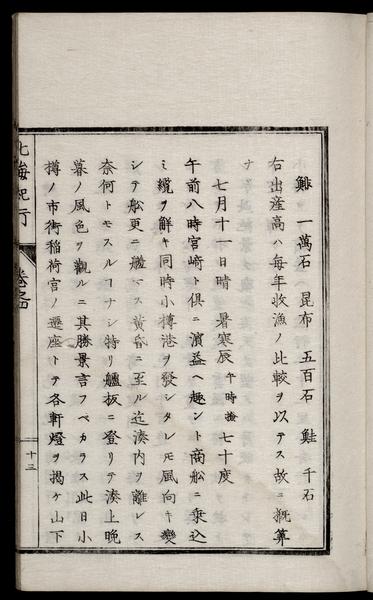 鯡 一萬石 昆布 五百石 鮭 千石
右出産高ハ每年收漁ノ比較ヲ以テス故ニ概算
ナ
七月十一日晴 暑寒辰 午時檢 七十度
午前八時宮崎ト俱ニ濱益ヘ趣ント商船ニ乘込
ミ纜ヲ解キ同時小樽港ヲ發シタレ𪜈風向キ變
シテ船更ニ艤マス黃昏ニ至ル迄湊內ヲ離レス
奈何トモスルヿナシ特リ艫板ニ登リテ湊上晚
暮ノ風色ヲ觀ルニ其勝景言フヘカラス此日小
樽ノ市街稻荷宮ノ遷座トテ各軒燈ヲ揭ケ山下
北海紀行
卷之
十三